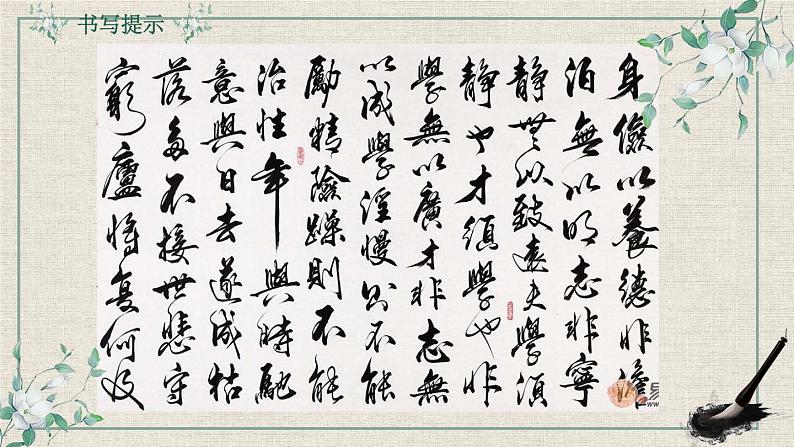 书写提示
身儉以養德非澹
泊無以明志非寧
静無以致遠夫學須
静也才須學也非
學無以廣才非志無
以成學淫慢则不能
勵精險躁則不能
治性年與時馳
意與日去遂成枯
落多不接世悲守
窮廬將复何及